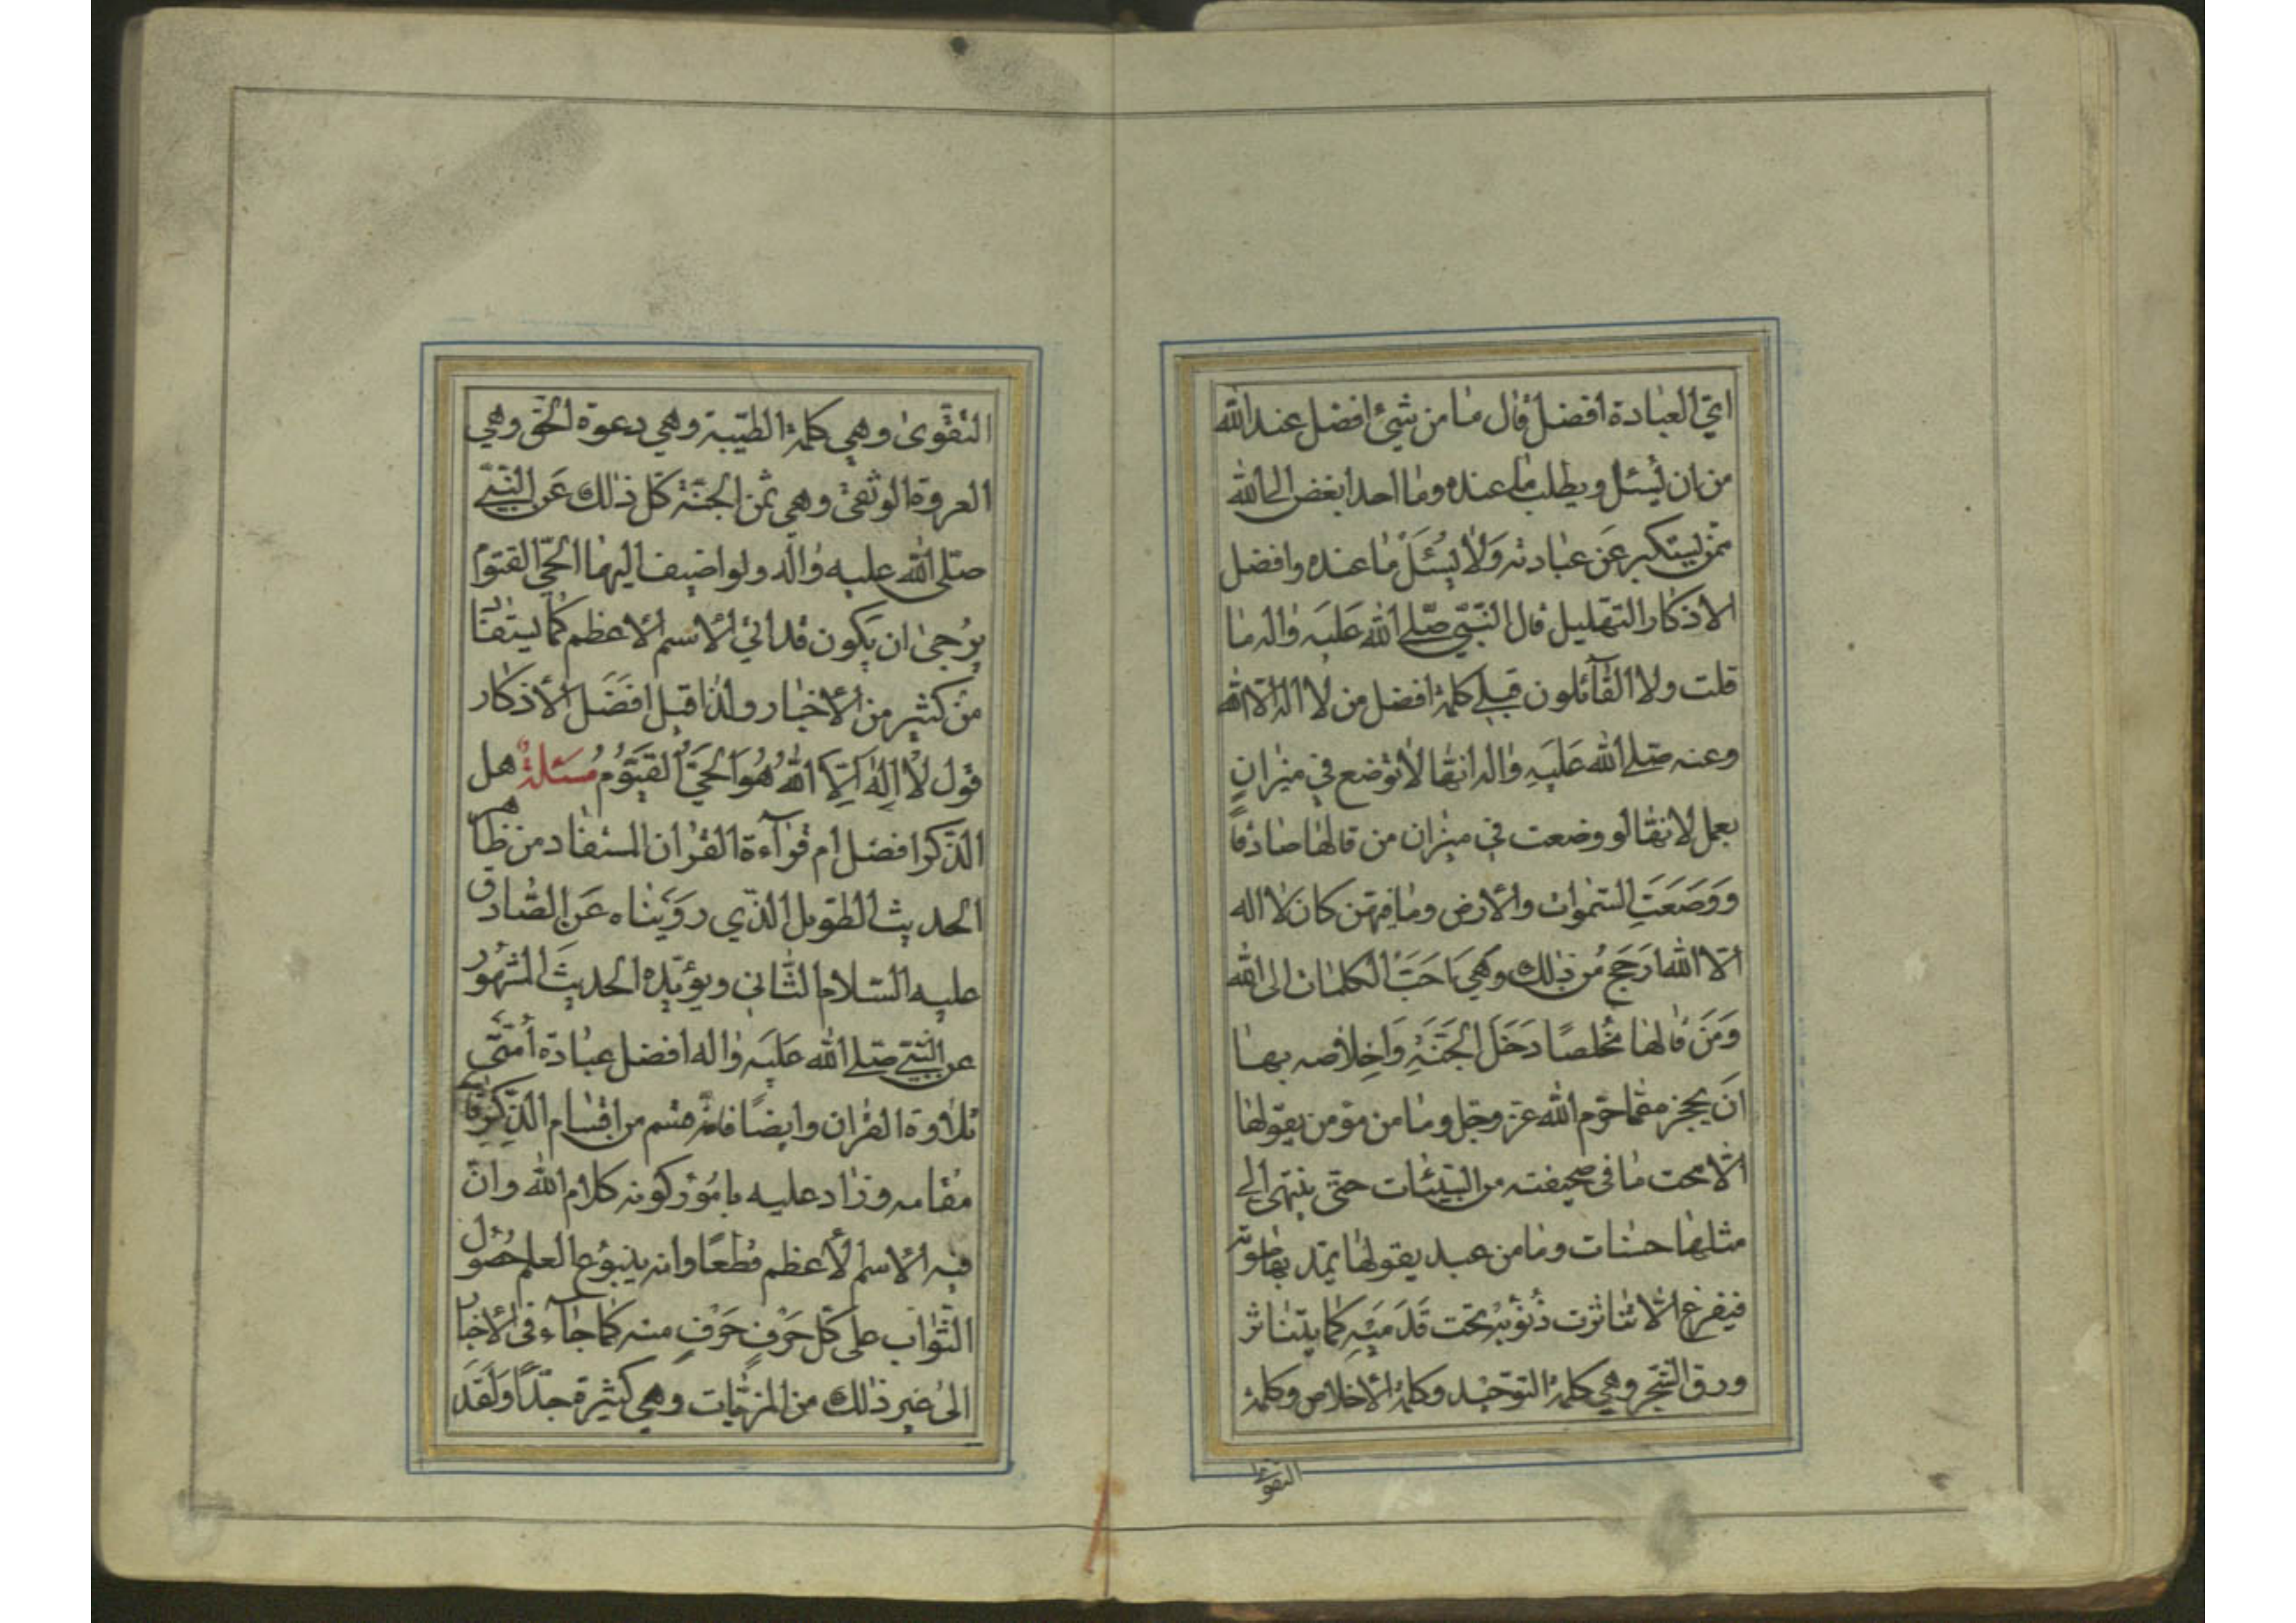 اىّ العبادة افضل قال ما من شئ افضل عند الله
من ان يُسئل ويطلب ما عنده وما احد ابغض الى الله
ممّن يستكبر عن عبادته ولا يُسئَلُ ما عنده وافضل
الاذكار التهليل قال النّبىّ صلّى الله عَلَيه واله ما
قلت ولا القآئلون قبلى كلمة افضل من لا اله الا الله
وعنه صلّى الله عَلَيهِ واله انّها لا توضع فى ميزان
بعمل لانّها لو وضعت فى ميزان من قالها صادقاً
وَوَضَعَتِ السّموات والارض وما فيهنّ كان لا اله
الّا الله ارَجَح من ذلك وهى احَبّ الكلمات الى الله
وَمَن قالها مُخلصًا دَخَلَ الجَنّةِ وَاخِلاصه بها
اَن يحجزه ممّا حرّم الله عزّ وجلّ وما من مؤمن يقولها
الّا محت ما فى صحيفته من السّيّئات حتّى ينتهى الى
مثلها حسنات وما من عبد يقولها يمدّ بها صوته
فيفرغ الّا تناثرت ذُنُوبُه تحت قَدَمَيْهِ كما يتناثر
ورق الشّجر وهى كلمة التوّحيد وكلمة الاخلاص وكلمة
التقوى
التّقوى وهى كلمة الطّيّبة وهى دعوة الحقّ وهى
العروة الوثقى وهى ثمن الجنّة كلّ ذلك عَن النّبىّ
صلّى الله عليه واله ولو اضيف اليها الحىّ القيّوم
يُرجى ان يكون قد اتى الاسم الاعظم كما يستفاد
من كثير من الاخبار ولذا قيل افضَل الاذكار
قول لا اِلهَ اِلّا اللهُ هُوَ الحَىّ القيّوم مسَئلة هل
الذّكر افضل ام قرآءة القران المستفاد من ظاهر
الحديث الطّويل الّذى روَيناه عَن الصّادق
عليه السّلام الثّانى ويؤيّده الحديث المشهور
عن النّبىّ صلّى الله عَلَيه واله افضل عبادة اُمّتى
تلاوة القران وايضًا فانّه قسم من اقسام الذّكر قائم
مقامه وزاد عليه بامُور كونه كلام الله وانّ
فيه الاسم الأعظم قطعًا وانه ينبوع العلم حصُول
الثّواب على كلّ حَرفٍ حَرفٍ منه كما جآء فى الاخبار
الى غير ذلك من المزيّات وهى كثيرة جدًّا وَلَقَد